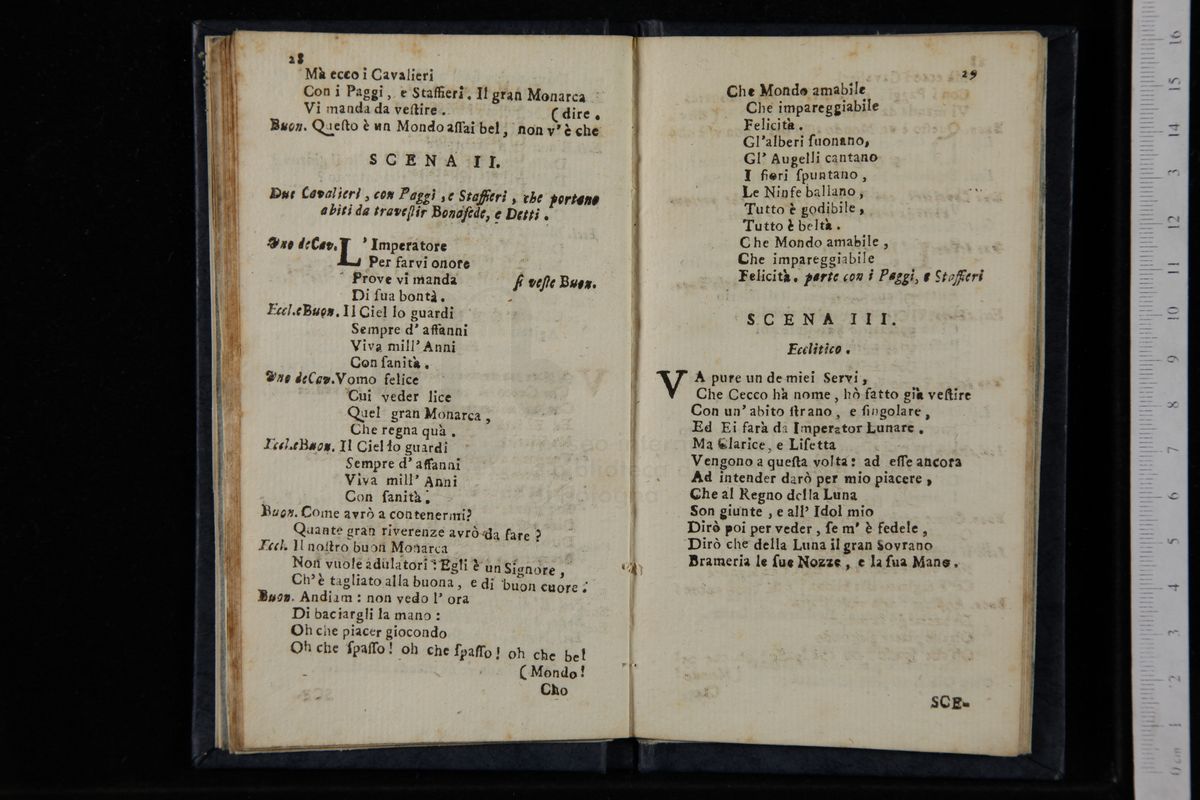 28
Mà ecco i Cavalieri
Con i Paggi, e Staffieri. Il gran Monarca
Vi manda da veſtire.
(dire.
Buon. Queſto è un Mondo aſſai bel, non v'è che
SCENA II.
Due Cavalieri, con Paggi, e Staffieri, che portano
abiti da traveſtir Bonafede, e Detti.
Uno de Cav. L'Imperatore
Per farvi onore
Prove vi manda ſi veſte Buon.
Di ſua bontà.
Eccl. e Buon. Il Ciel lo guardi
Sempre d'affanni
Viva mill' Anni
Con ſanità.
Uno de Cav. Vomo felice
Cui veder lice
Quel gran Monarca,
Che regna quà.
Eccl. e Buon. Il Ciel lo guardi
Sempre d'affanni
Viva mill' Anni
Con ſanità.
Buon. Come avrò a contenermi?
Quante gran riverenze avrò da fare?
Eccl. Il noſtro buon Monarca
Non vuole adulatori: Egli è un Signore,
Ch'è tagliato alla buona, e di buon cuore.
Buon. Andiam: non vedo l'ora
Di baciargli la mano:
Oh che piacer giocondo
Oh che ſpaſſo! oh che ſpaſſo! oh che bel
(Mondo!
Cho
29
Che Mondo amabile
Che impareggiabile
Felicità.
Gl'alberi ſuonano,
Gl' Augelli cantano
I fiori ſpuntano,
Le Ninfe ballano,
Tutto è godibile,
Tutto è beltà.
Che Mondo amabile,
Che impareggiabile
Felicità. parte con i Paggi, e Stafſieri
SCENA III.
Ecclitico.
VA pure un de miei Servi,
Che Cecco hà nome, hò fatto già veſtire
Con un'abito ſtrano, e ſingolare,
Ed Ei farà da Imperator Lunare.
Ma Clarice, e Liſetta
Vengono a queſta volta: ad eſſe ancora
Ad intender darò per mio piacere,
Che al Regno della Luna
Son giunte, e all' Idol mio
Dirò poi per veder, ſe m'è fedele,
Dirò che della Luna il gran Sovrano
Brameria le ſue Nozze, e la ſua Mano.
SCE-